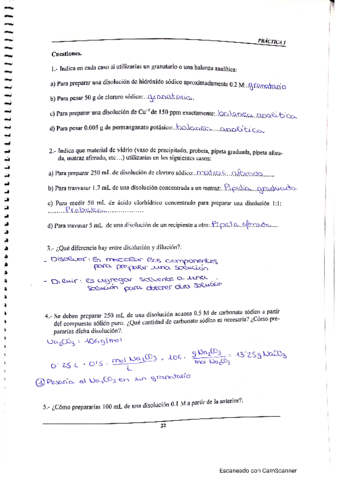 PRÁCTICA 1
Cuestiones.
1.- Indica en cada caso si utilizarías un granatario o una balanza analítica:
a) Para preparar una disolución de hidróxido sódico aproximadamente 0.2 M: granatario
b) Para pesar 50 g de cloruro sódico: granatario
c) Para preparar una disolución de Cu+2 de 150 ppm exactamente: balanza analítica
d) Para pesar 0.005 g de permanganato potásico: balanza analítica
2.- Indica que material de vidrio (vaso de precipitado, probeta, pipeta graduada, pipeta afora-
da, matraz aforado, etc…) utilizarías en los siguientes casos:
a) Para preparar 250 mL de disolución de cloruro sódico: matraz aforado
b) Para travasar 1.7 mL de una disolución concentrada a un matraz: Pipeta graduada
c) Para medir 50 mL de ácido clorhídrico concentrado para preparar una disolución 1:1:
Probeta
d) Para travasar 5 mL de una disolución de un recipiente a otro: Pipeta aforada
3.- ¿Qué diferencia hay entre disolución y dilución?
- Disolver: Es mezclar los componentes
para preparar una solución
- Diluir: es agregar solvente a una
solución para obtener otra solución
4.- Se deben preparar 250 mL de una disolución acuosa 0.5 M de carbonato sódico a partir
del compuesto sólido puro. ¿Qué cantidad de carbonato sódico es necesaria? ¿Cómo pre-
pararías dicha disolución?
Na2CO3 = 106g/mol
0'25 L · 0'5 mol Na2CO3 / L · 106 g Na2CO3 / mol Na2CO3 = 13'25g Na2CO3
① Pesaría el Na2CO3 en un granatario
5.- ¿Cómo prepararías 100 mL de una disolución 0.1 M a partir de la anterior?
21
Escaneado con CamScanner